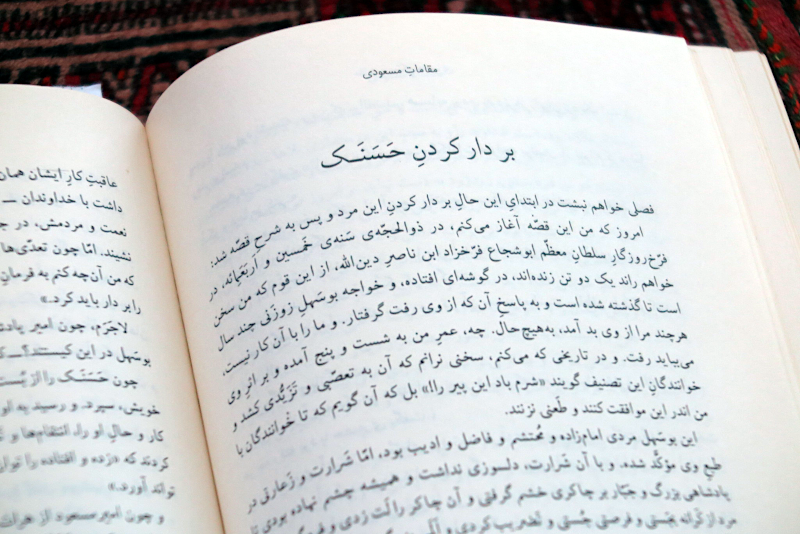 مقاماتِ مسعودی
بر دار کردنِ حَسَنَـک
فصلی خواهم نبشت در ابتدایِ این حالِ بر دار کردنِ این مرد و پس به شرحِ قصّه شد:
امروز که من این قصّه آغاز می‌کنم، در ذوالحجّه‌ی سَنه‌ی خَمسین و اَربَعَمائه، در
فرّخ‌روزگارِ سلطانِ معظّم ابوشجاع فرّخزاد ابن ناصرِ دین‌الله، از این قوم که من سخن
خواهم راند یک دو تن زنده‌اند، در گوشه‌ای افتاده، و خواجه بوسَهلِ زوزَنی چند سال
است تا گذشته شده است و به پاسخِ آن که از وی رفت گرفتار. و ما را با آن کار نیست،
هرچند مرا از وی بد آمد، به‌هیچ‌حال. چه، عمرِ من به شست و پنج آمده و بر اثرِ وی
می‌بباید رفت. و در تاریخی که می‌کنم، سخنی نرانم که آن به تعصّبی و تَزَیُّدی کشد و
خوانندگانِ این تصنیف گویند «شرم باد این پیر را!» بل که آن گویم که تا خوانندگان با
من اندر این موافقت کنند و طَعنی نزنند.
این بوسَهل مردی امام‌زاده و مُحتشم و فاضل و ادیب بود، امّا شَرارت و زَعارتی در
طبعِ وی مؤکَّد شده. و با آن شَرارت، دلسوزی نداشت و همیشه چشم نهاده بودی تا
پادشاهی بزرگ و جبّار بر چاکری خشم گرفتی و آن چاکر را لَت زدی و
مرد از کرانه بجَستی و فرصتی جُستی و تضریب کردی و
عاقبتِ کارِ ایشان همان
داشت با خداوندان ــ
نعمت و مردمش، در
نشیند. امّا چون تعدّی‌ها
که من آن‌چه کنم به فرمانِ
را بر دار باید کرد.»
لاجَرَم، چون امیر
بوسهل در این کیستند؟ــ
چون حَسَنَـک را از بُست
خویش، سپرد. و رسید به او
کار و حالِ او را، انتقام‌ها و
کردند که «زده و افتاده را توان
تواند آورد.»
و چون امیرمسعود از هرات